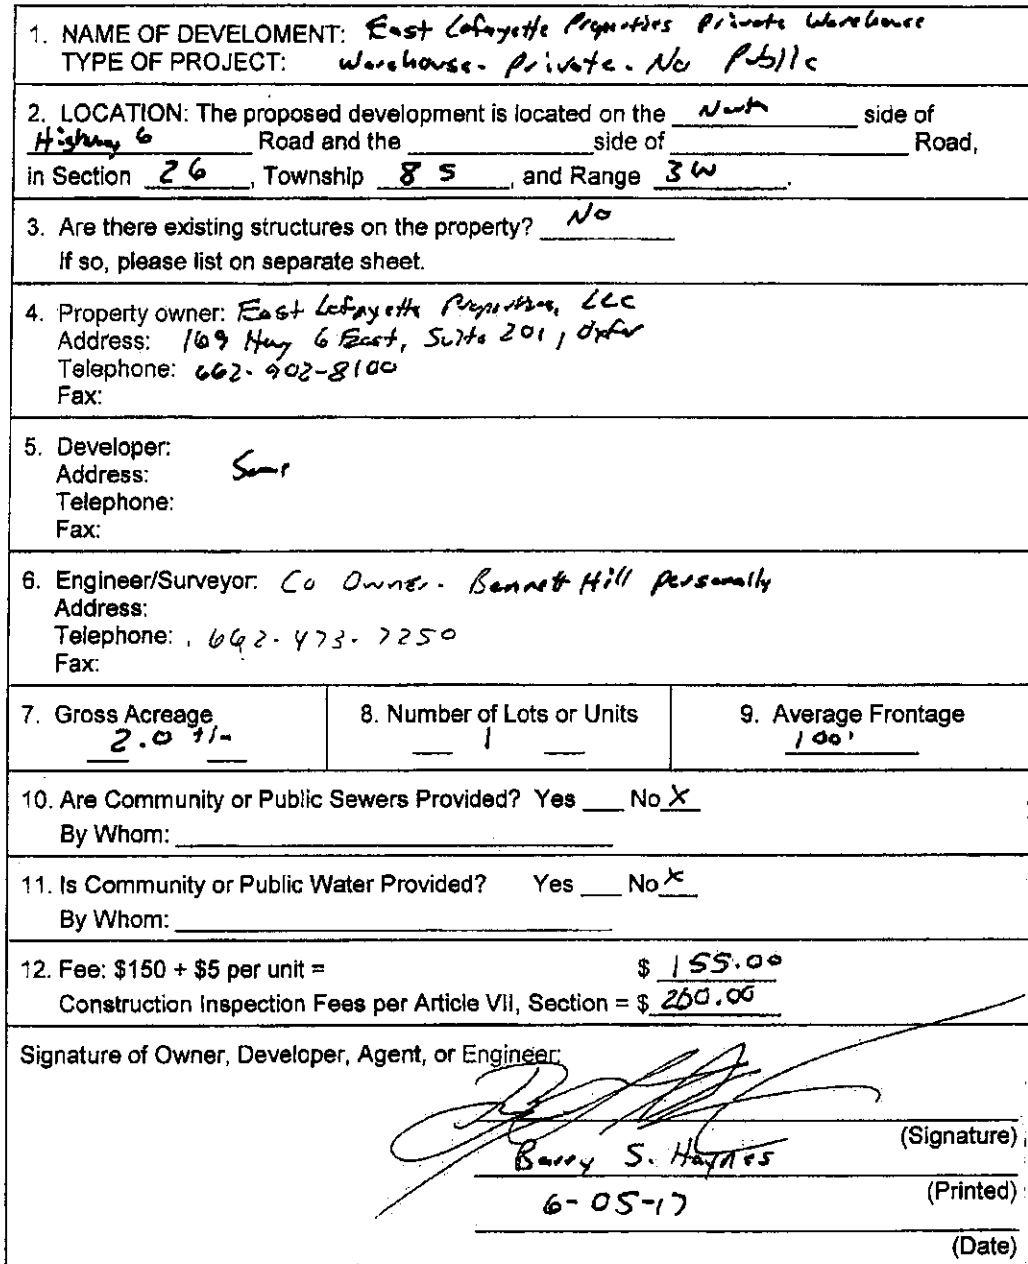 1. NAME OF DEVELOMENT: East Lafayette Properties Private Warehouse
TYPE OF PROJECT: Warehouse - Private - No Public
2. LOCATION: The proposed development is located on the North side of
Highway 6 Road and the ____ side of ____ Road,
in Section 26, Township 8 S, and Range 3 W.
3. Are there existing structures on the property? No
If so, please list on separate sheet.
4. Property owner: East Lafayette Properties, LLC
Address: 169 Hwy 6 East, Suite 201, Oxford
Telephone: 662-902-8100
Fax:
5. Developer:
Address: Same
Telephone:
Fax:
6. Engineer/Surveyor: Co Owner - Bennett Hill personally
Address:
Telephone: 662-473-7250
Fax:
7. Gross Acreage 8. Number of Lots or Units 9. Average Frontage
2.0 +/- 1 100'
10. Are Community or Public Sewers Provided? Yes ___ No X
By Whom:
11. Is Community or Public Water Provided? Yes ___ No X
By Whom:
12. Fee: $150 + $5 per unit = $ 155.00
Construction Inspection Fees per Article VII, Section = $ 200.00
Signature of Owner, Developer, Agent, or Engineer:
(Signature)
Barry S. Haynes
(Printed)
6-05-17
(Date)